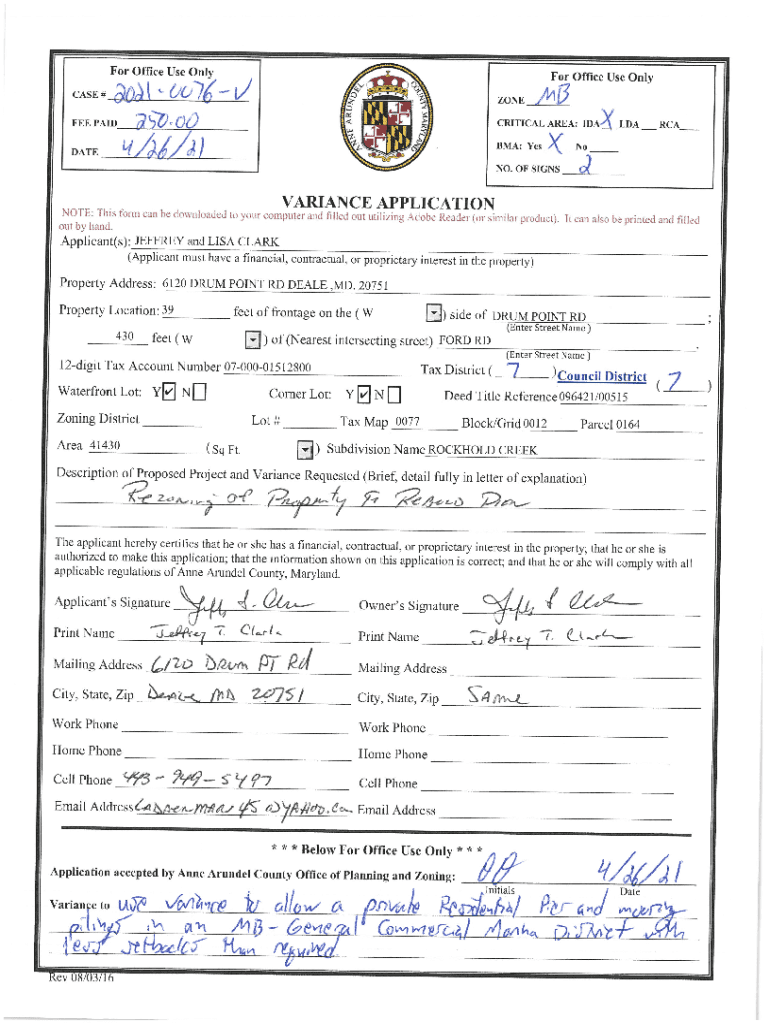 For Office Use Only
CASE # 2021-0076-V
FEE PAID 250.00
DATE 4/26/21
ANNE ARUNDEL COUNTY MARYLAND
For Office Use Only
ZONE MB
CRITICAL AREA: IDA X LDA RCA
BMA: Yes X No
NO. OF SIGNS 2
VARIANCE APPLICATION
NOTE: This form can be downloaded to your computer and filled out utilizing Adobe Reader (or similar product). It can also be printed and filled
out by hand.
Applicant(s): JEFFREY and LISA CLARK
(Applicant must have a financial, contractual, or proprietary interest in the property)
Property Address: 6120 DRUM POINT RD DEALE ,MD. 20751
Property Location: 39 feet of frontage on the ( W ) side of DRUM POINT RD ;
(Enter Street Name )
430 feet ( W ) of (Nearest intersecting street) FORD RD .
(Enter Street Name )
12-digit Tax Account Number 07-000-01512800 Tax District ( 7 ) Council District ( 7 )
Waterfront Lot: Y ✓ N Corner Lot: Y ✓ N Deed Title Reference 096421/00515
Zoning District Lot # Tax Map 0077 Block/Grid 0012 Parcel 0164
Area 41430 (Sq Ft. ) Subdivision Name ROCKHOLD CREEK
Description of Proposed Project and Variance Requested (Brief, detail fully in letter of explanation)
Rezoning of Property To
The applicant hereby certifies that he or she has a financial, contractual, or proprietary interest in the property; that he or she is
authorized to make this application; that the information shown on this application is correct; and that he or she will comply with all
applicable regulations of Anne Arundel County, Maryland.
Applicant's Signature Owner's Signature
Print Name Jeffrey T. Clark Print Name Jeffrey T. Clark
Mailing Address 6120 DRUM PT Rd Mailing Address
City, State, Zip Deale MD 20751 City, State, Zip SAme
Work Phone Work Phone
Home Phone Home Phone
Cell Phone 443-949-5497 Cell Phone
Email Address Email Address
* * * Below For Office Use Only * * *
Application accepted by Anne Arundel County Office of Planning and Zoning: 4/26/21
Initials Date
Variance to use variance to allow a private Residential Pier and mooring
pilings in an MB - General Commercial Marina District with
less setbacks than required
Rev 08/03/16